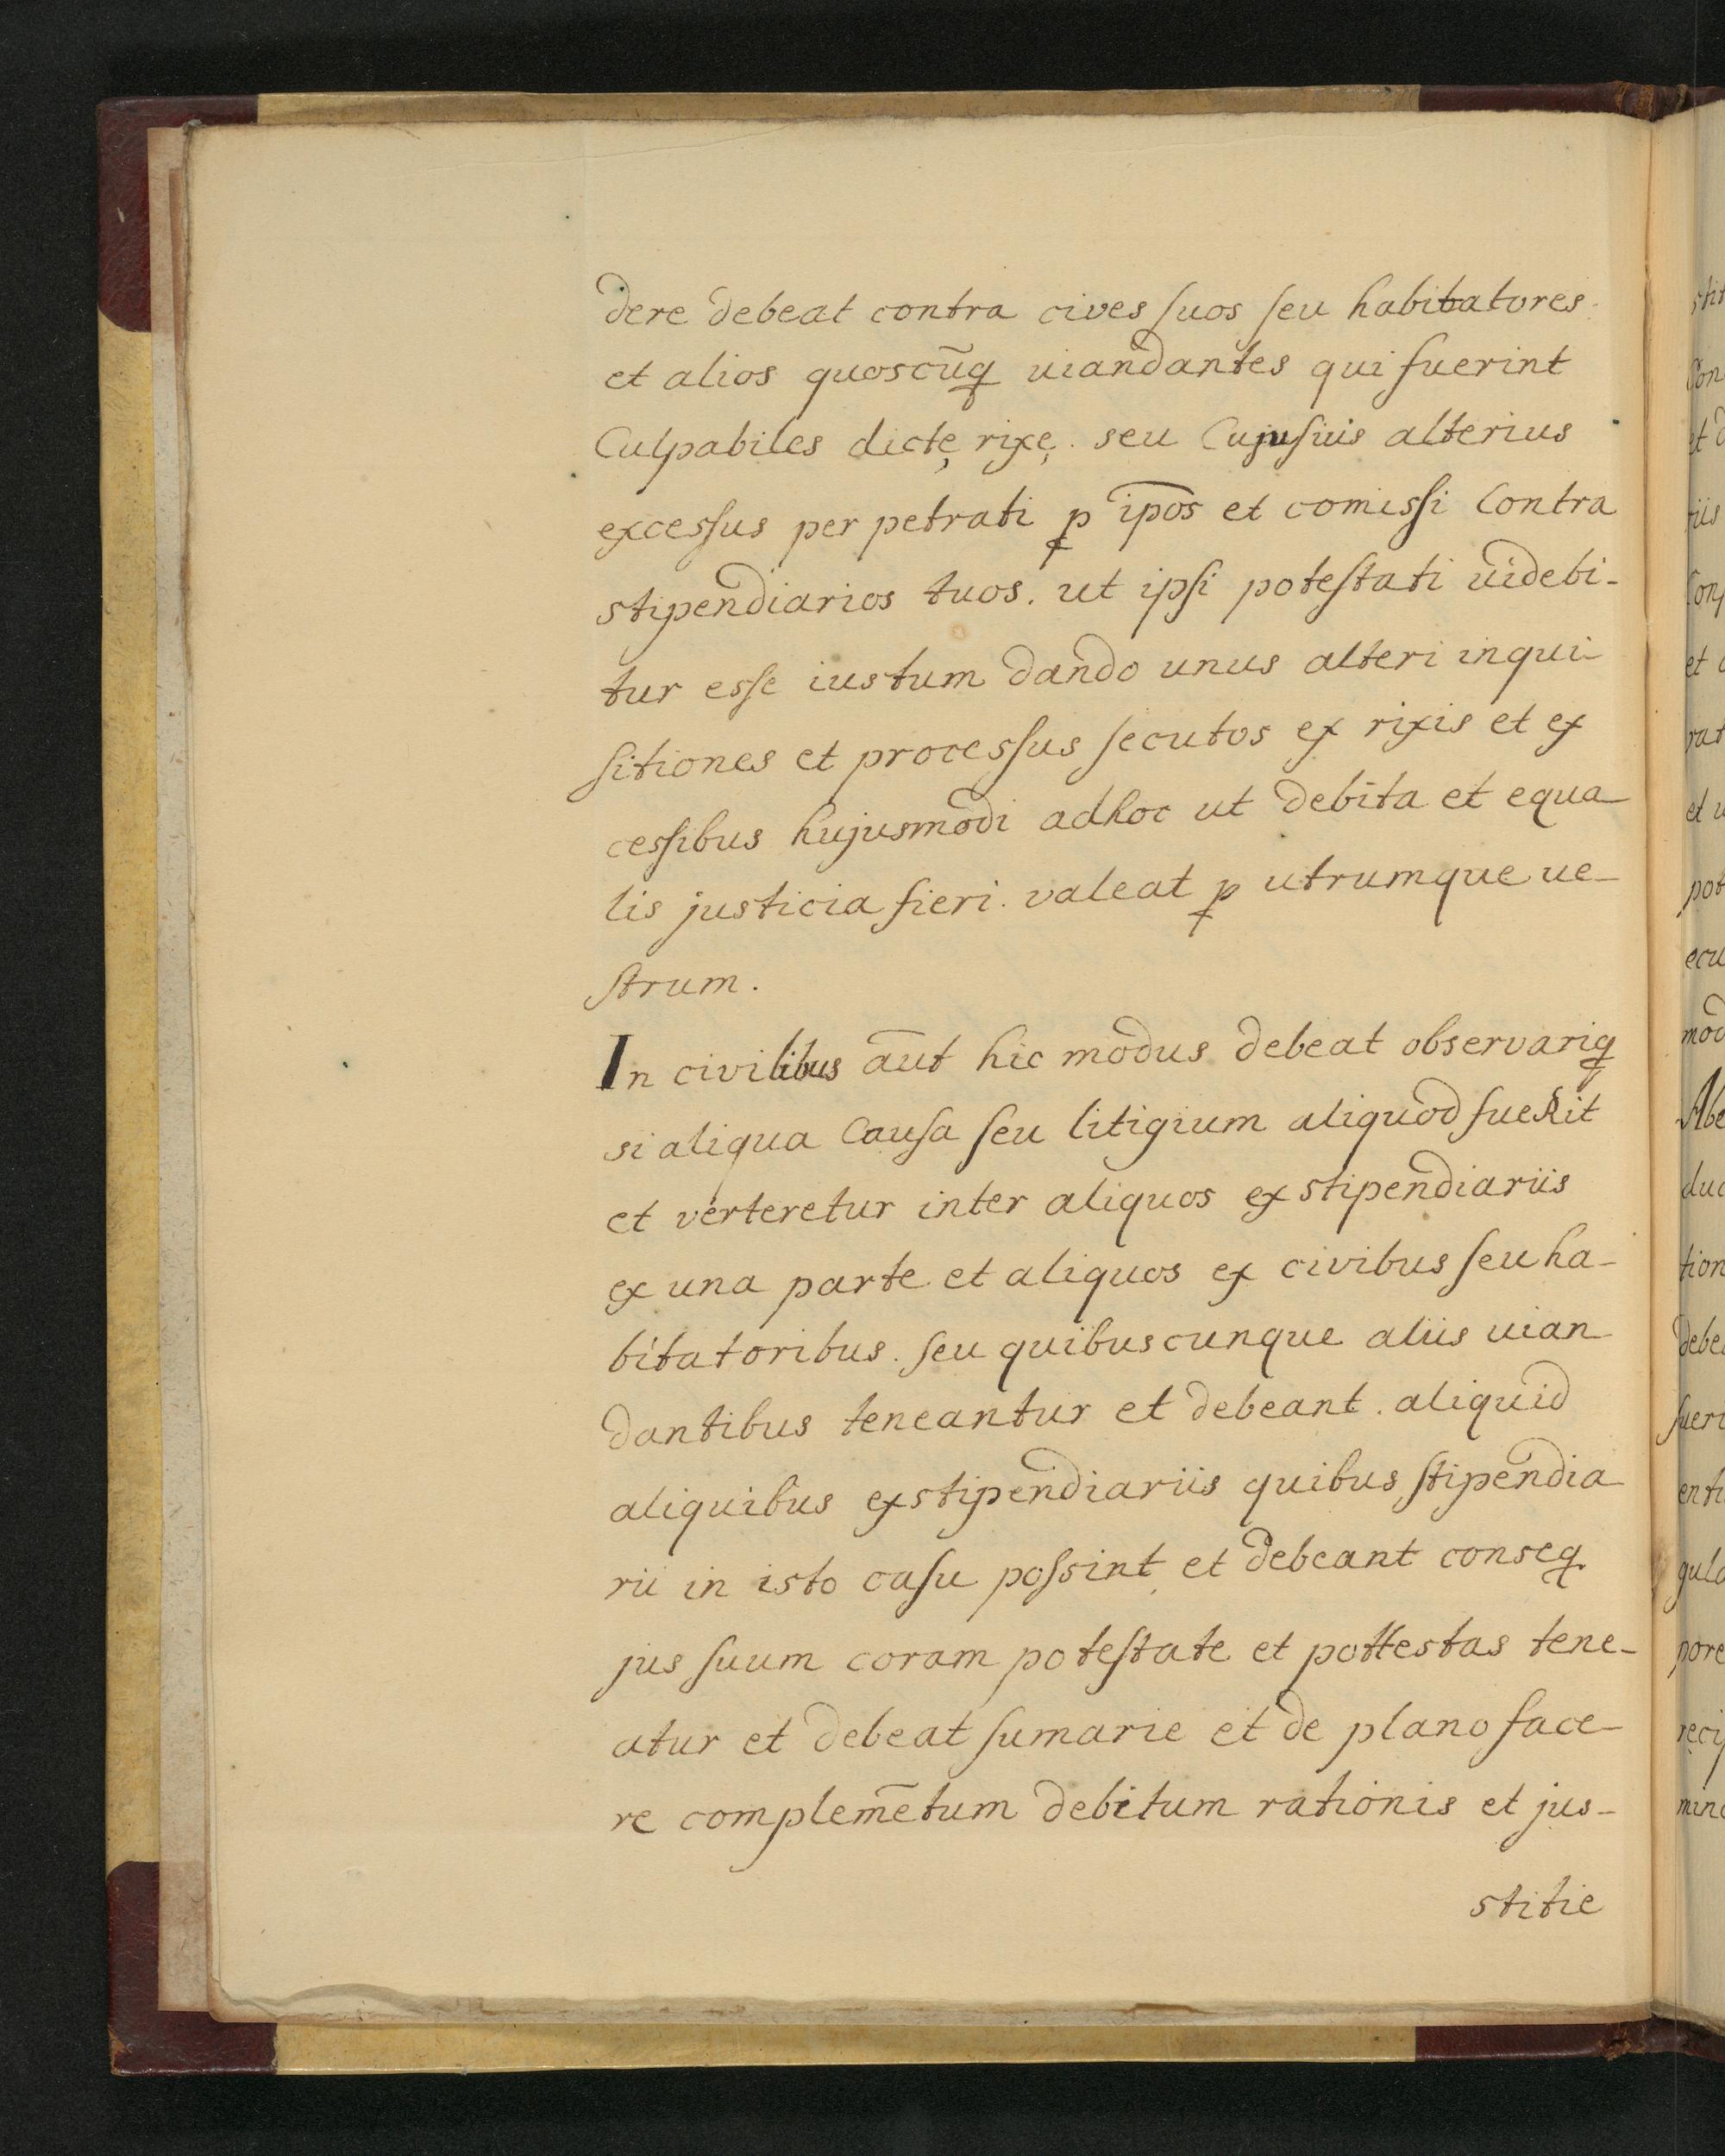 dere debeat contra cives suos seu habitatores
et alios quoscūq uiandantes qui fuerint
Culpabiles dictę rixę. seu Cujusuis alterius
excessus per petrati ꝑ ip̄os et comissi Contra
stipendiarios tuos. ut ipsi potestati uidebi-
tur esse iustum dando unus alteri inqui-
sitiones et processus secutos ex rixis et ex
cessibus hujusmodi adhoc ut debita et equa-
lis justicia fieri. valeat ꝑ utrumque ue-
strum.
In civilibus aūt hic modus debeat observariq
si aliqua Causa seu litigium aliquod fueRit
et verteretur inter aliquos ex stipendiariis
ex una parte et aliquos ex civibus seu ha-
bitatoribus. seu quibuscunque aliis uian-
dantibus teneantur et debeant. aliquid
aliquibus exstipendiariis quibus stipendia
rii in isto casu possint et debeant conseq.
jus suum coram potestate et pottestas tene-
atur et debeat sumarie et de plano face-
re complemētum debitum rationis et jus-
stitie